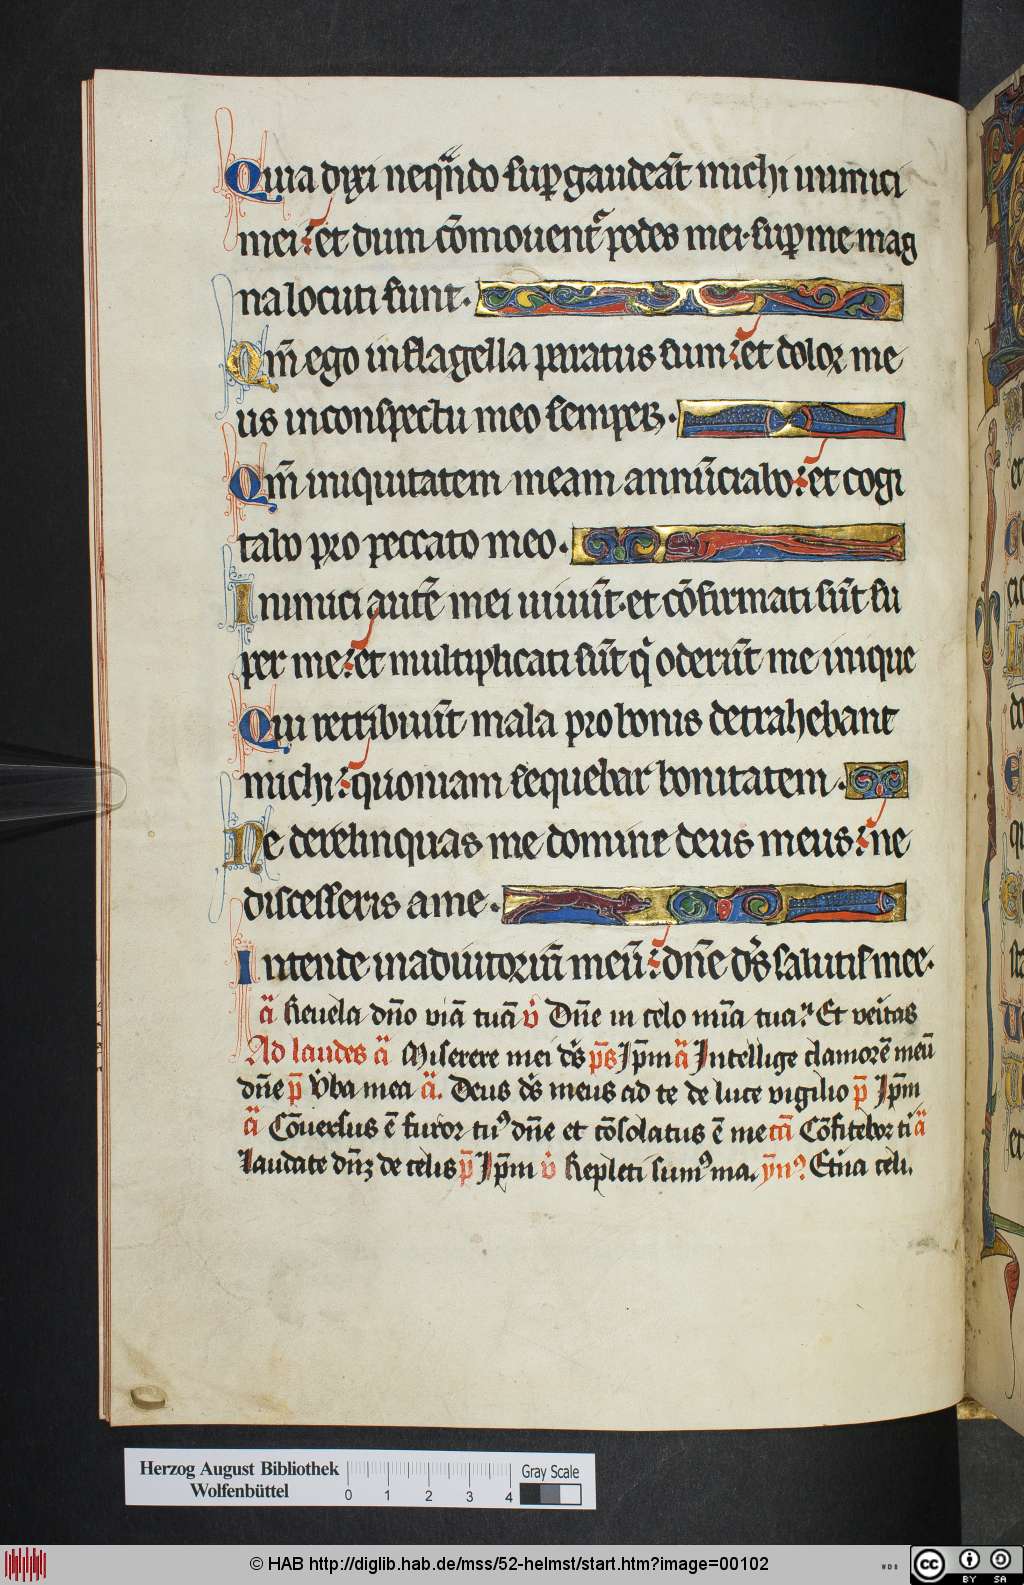 Quia dixi neqn̄do sup gaudeāt michi inimici
mei· et dum cōmouent᷑ pedes mei· sup me mag
na locuti sunt.
Qm̄ ego in flagella paratus sum· et dolor me
us in conspectu meo semper.
Qm̄ iniquitatem meam annūciabo· et cogi
tabo pro peccato meo.
Inimici autē mei uiuūt· et cōfirmati sūt su
per me· et multiplicati sūt q̇ oderūt me inique
Qui retribuūt mala pro bonis detrahebant
michi· quoniam sequebar bonitatem.
Ne derelinquas me domine deus meus· ne
discesseris a me.
Intende in adiutoriū meū· dn̄e ds̄ salutis mee.
ā Reuela dn̄o uiā tuā v̇ Dn̄e in celo mīa tua. Et veītas
Ad laudes ā Miserere mei ds̄ ps̄ Ip̄m ā Intellige clamorē meū
dn̄e p̄ V̇ba mea ā. Deus ds̄ meus ad te de luce vigilio p̄ Ip̄m
ā Cōuersus ē furor tu᷒ dn̄e et cōsolatus ē me cā Cōfitebor ti ā
Laudate dn̄ȝ de celis p̄ Ip̄m v̇ Repleti sum᷒ ma. yn̄ Et̄na celi.
Herzog August Bibliothek
Wolfenbüttel
0 1 2 3 4
Gray Scale
© HAB http://diglib.hab.de/mss/52-helmst/start.htm?image=00102
WDB
cc BY SA